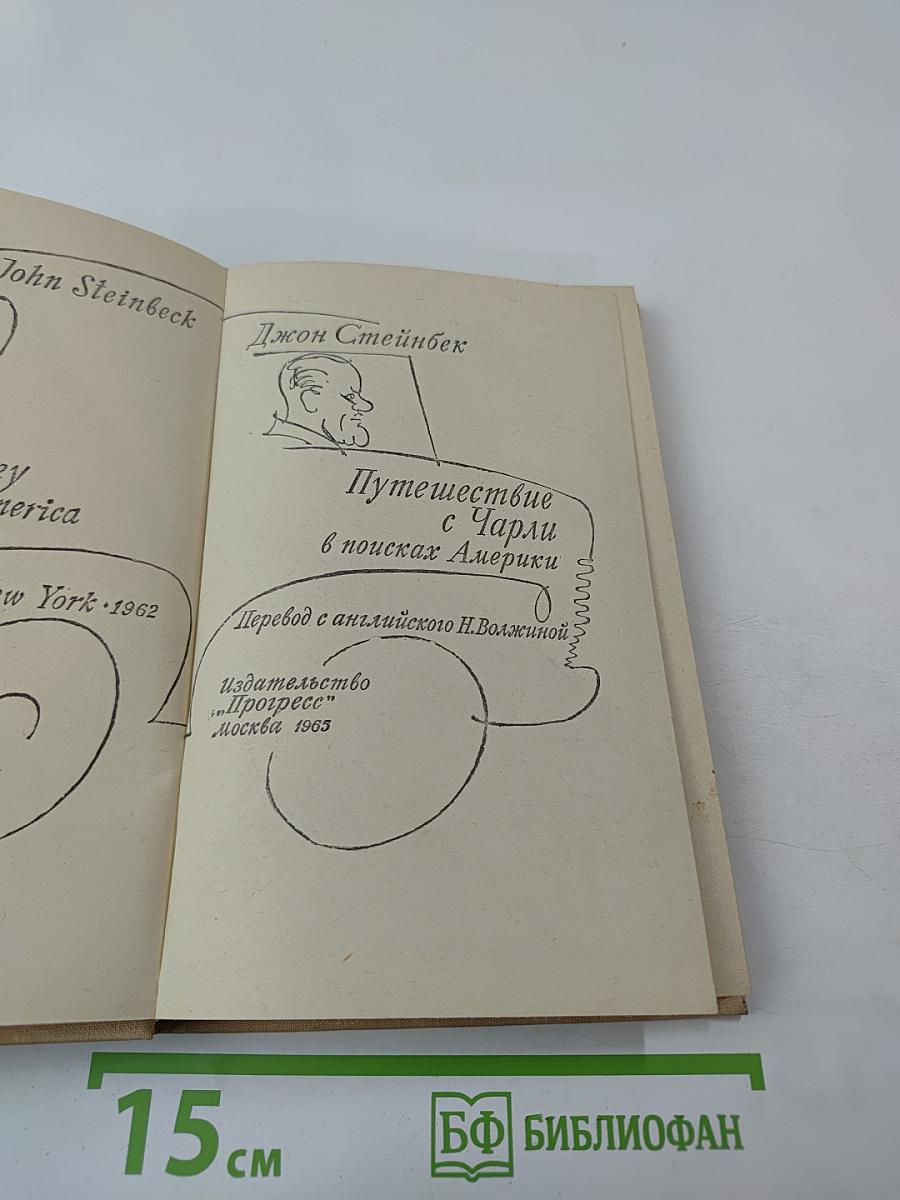 John Steinbeck
ey
merica
ew York • 1962
Джон Стейнбек
Путешествие
с Чарли
в поисках Америки
Перевод с английского Н.Волжиной
издательство
„Прогресс"
москва 1965
15 см
БФ БИБЛИОФАН